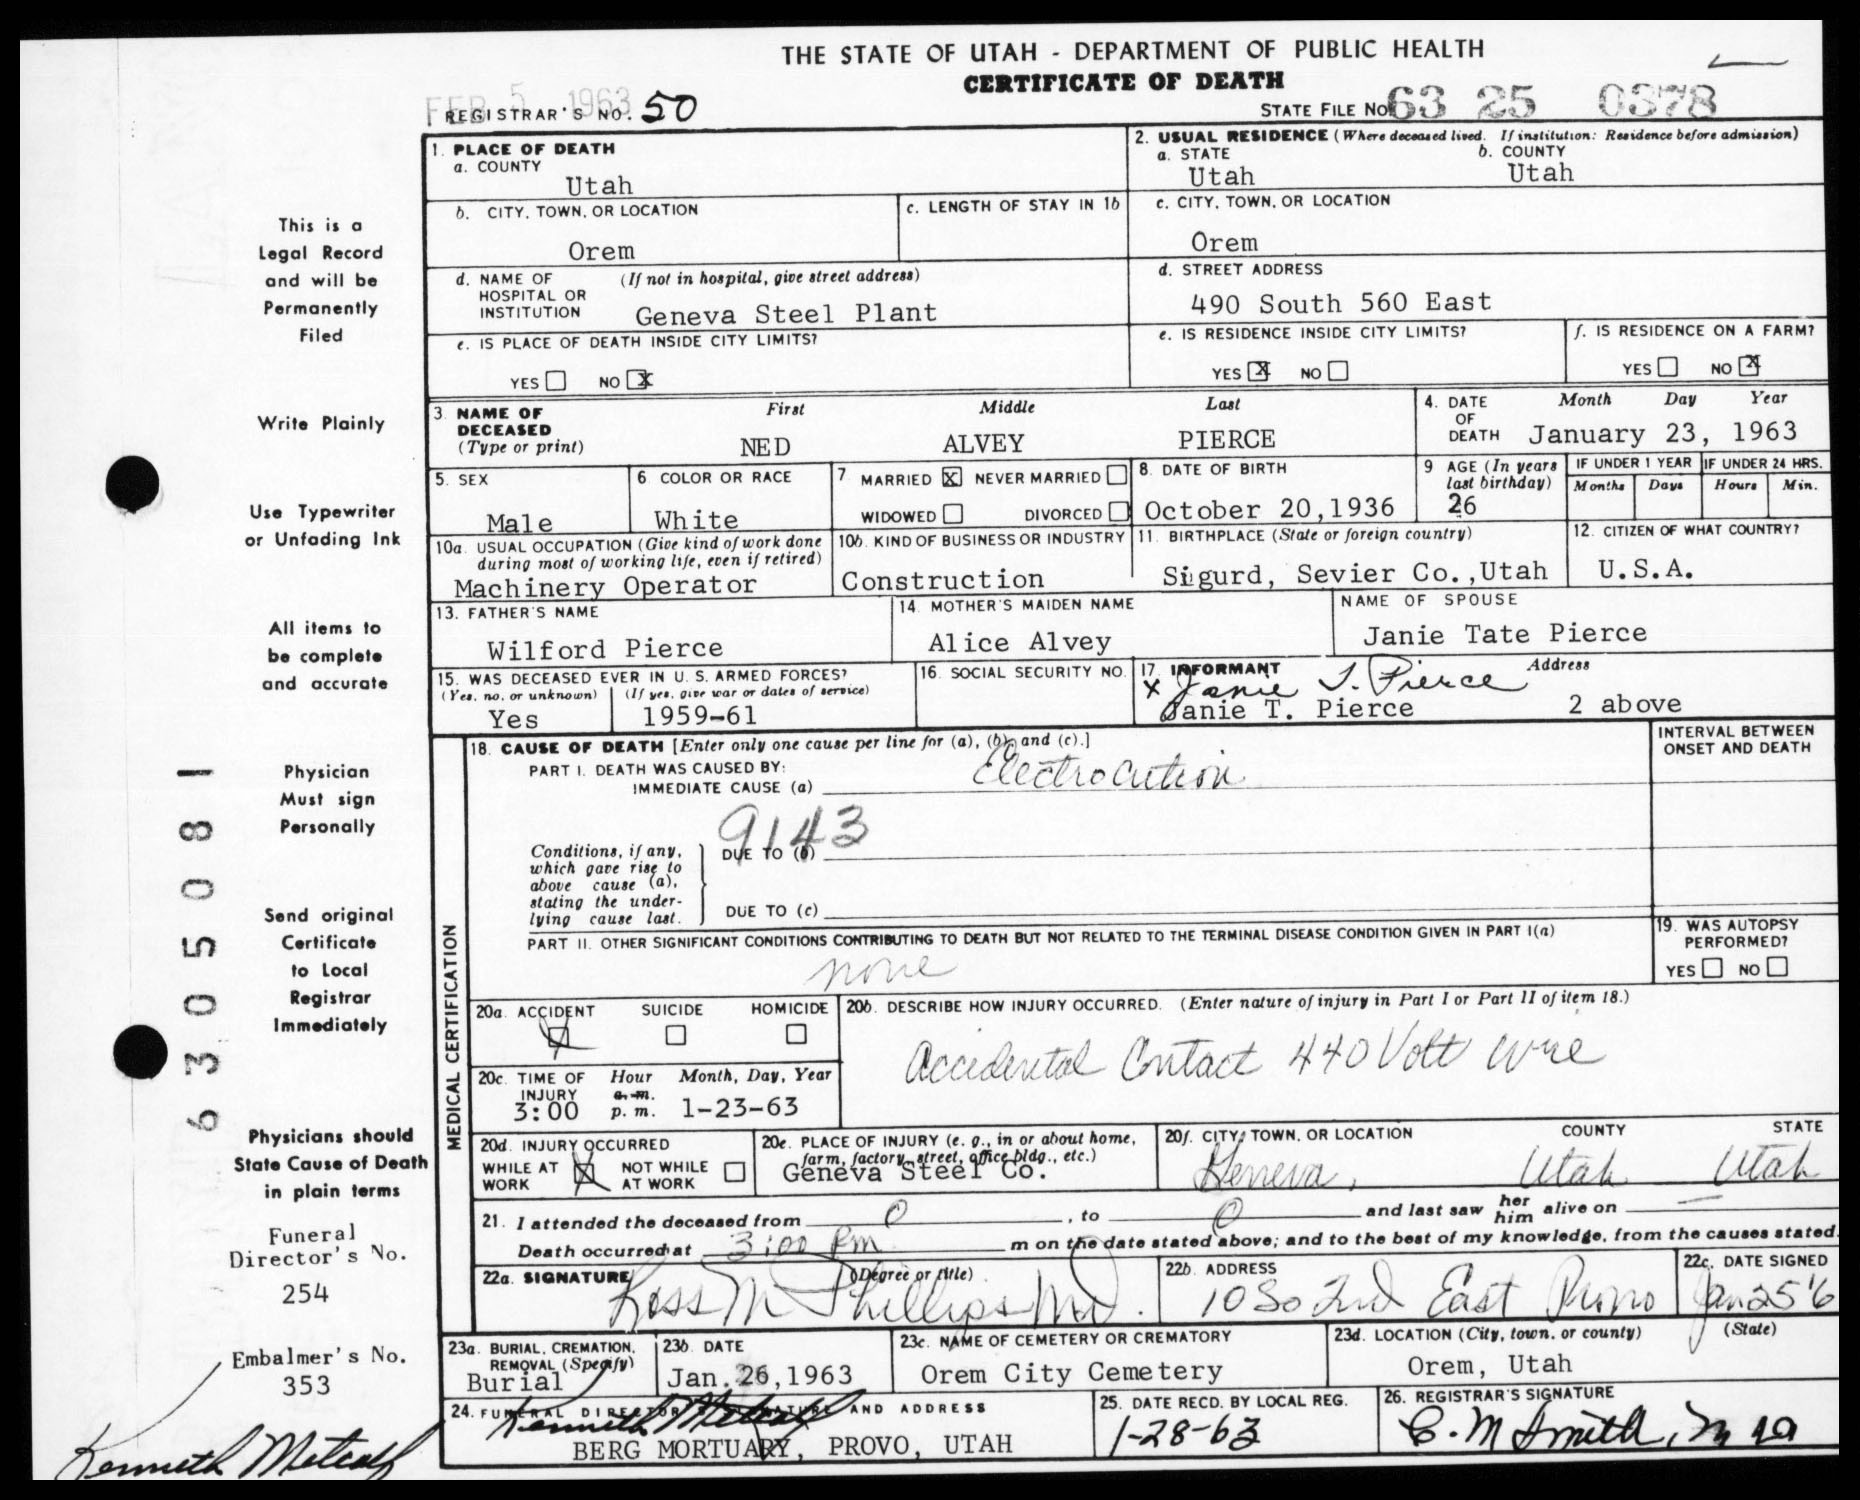 THE STATE OF UTAH - DEPARTMENT OF PUBLIC HEALTH
CERTIFICATE OF DEATH
FEB 5 1963
REGISTRAR'S NO. 50
STATE FILE NO. 63 25 0378
1. PLACE OF DEATH
a. COUNTY
Utah
2. USUAL RESIDENCE (Where deceased lived. If institution: Residence before admission)
a. STATE
Utah
b. COUNTY
Utah
b. CITY, TOWN, OR LOCATION
Orem
c. LENGTH OF STAY IN 1b
c. CITY, TOWN, OR LOCATION
Orem
d. NAME OF HOSPITAL OR INSTITUTION (If not in hospital, give street address)
Geneva Steel Plant
d. STREET ADDRESS
490 South 560 East
e. IS PLACE OF DEATH INSIDE CITY LIMITS?
YES NO X
e. IS RESIDENCE INSIDE CITY LIMITS?
YES X NO
f. IS RESIDENCE ON A FARM?
YES NO X
3. NAME OF DECEASED (Type or print)
First Middle Last
NED ALVEY PIERCE
4. DATE OF DEATH
Month Day Year
January 23, 1963
5. SEX
Male
6 COLOR OR RACE
White
7 MARRIED X NEVER MARRIED
WIDOWED DIVORCED
8. DATE OF BIRTH
October 20,1936
9 AGE (In years last birthday)
26
IF UNDER 1 YEAR
Months Days
IF UNDER 24 HRS.
Hours Min.
10a. USUAL OCCUPATION (Give kind of work done during most of working life, even if retired)
Machinery Operator
10b. KIND OF BUSINESS OR INDUSTRY
Construction
11. BIRTHPLACE (State or foreign country)
Sigurd, Sevier Co.,Utah
12. CITIZEN OF WHAT COUNTRY?
U.S.A.
13. FATHER'S NAME
Wilford Pierce
14. MOTHER'S MAIDEN NAME
Alice Alvey
NAME OF SPOUSE
Janie Tate Pierce
15. WAS DECEASED EVER IN U. S. ARMED FORCES?
(Yes, no, or unknown) (If yes, give war or dates of service)
Yes 1959-61
16. SOCIAL SECURITY NO.
17. INFORMANT Address
X Janie T. Pierce
Janie T. Pierce 2 above
MEDICAL CERTIFICATION
18. CAUSE OF DEATH [Enter only one cause per line for (a), (b), and (c).]
INTERVAL BETWEEN ONSET AND DEATH
PART I. DEATH WAS CAUSED BY:
IMMEDIATE CAUSE (a) Electrocution
9143
Conditions, if any, which gave rise to above cause (a), stating the underlying cause last.
DUE TO (b)
DUE TO (c)
PART II. OTHER SIGNIFICANT CONDITIONS CONTRIBUTING TO DEATH BUT NOT RELATED TO THE TERMINAL DISEASE CONDITION GIVEN IN PART I(a)
none
19. WAS AUTOPSY PERFORMED?
YES NO
20a. ACCIDENT SUICIDE HOMICIDE
X
20b. DESCRIBE HOW INJURY OCCURRED. (Enter nature of injury in Part I or Part II of item 18.)
Accidental Contact 440 Volt wire
20c. TIME OF INJURY Hour Month, Day, Year
a. m.
3:00 p. m. 1-23-63
20d. INJURY OCCURRED
WHILE AT WORK X NOT WHILE AT WORK
20e. PLACE OF INJURY (e. g., in or about home, farm, factory, street, office bldg., etc.)
Geneva Steel Co.
20f. CITY, TOWN, OR LOCATION COUNTY STATE
Geneva, Utah Utah
21. I attended the deceased from 0, to 0 and last saw her him alive on —
Death occurred at 3:00 Pm m on the date stated above; and to the best of my knowledge, from the causes stated.
22a. SIGNATURE (Degree or title)
Ross M Phillips MD.
22b. ADDRESS
10 So 2nd East Provo
22c. DATE SIGNED
Jan 25 '6
23a. BURIAL, CREMATION, REMOVAL (Specify)
Burial
23b. DATE
Jan. 26,1963
23c. NAME OF CEMETERY OR CREMATORY
Orem City Cemetery
23d. LOCATION (City, town, or county) (State)
Orem, Utah
24. FUNERAL DIRECTOR'S SIGNATURE AND ADDRESS
Kenneth Metcalf
BERG MORTUARY, PROVO, UTAH
25. DATE RECD. BY LOCAL REG.
1-28-63
26. REGISTRAR'S SIGNATURE
C. M Smith, M D
This is a
Legal Record
and will be
Permanently
Filed
Write Plainly
Use Typewriter
or Unfading Ink
All items to
be complete
and accurate
Physician
Must sign
Personally
Send original
Certificate
to Local
Registrar
Immediately
Physicians should
State Cause of Death
in plain terms
Funeral
Director's No.
254
Embalmer's No.
353
Kenneth Metcalf
6305081